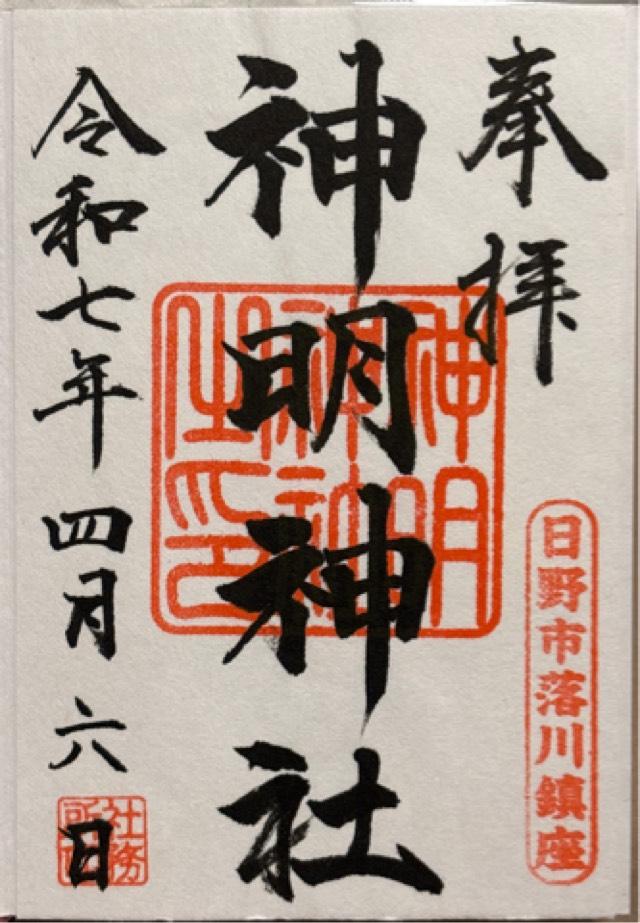 奉拝
日野市落川鎮座
神明神社
神明神社之印
令和七年四月六日
社務所印